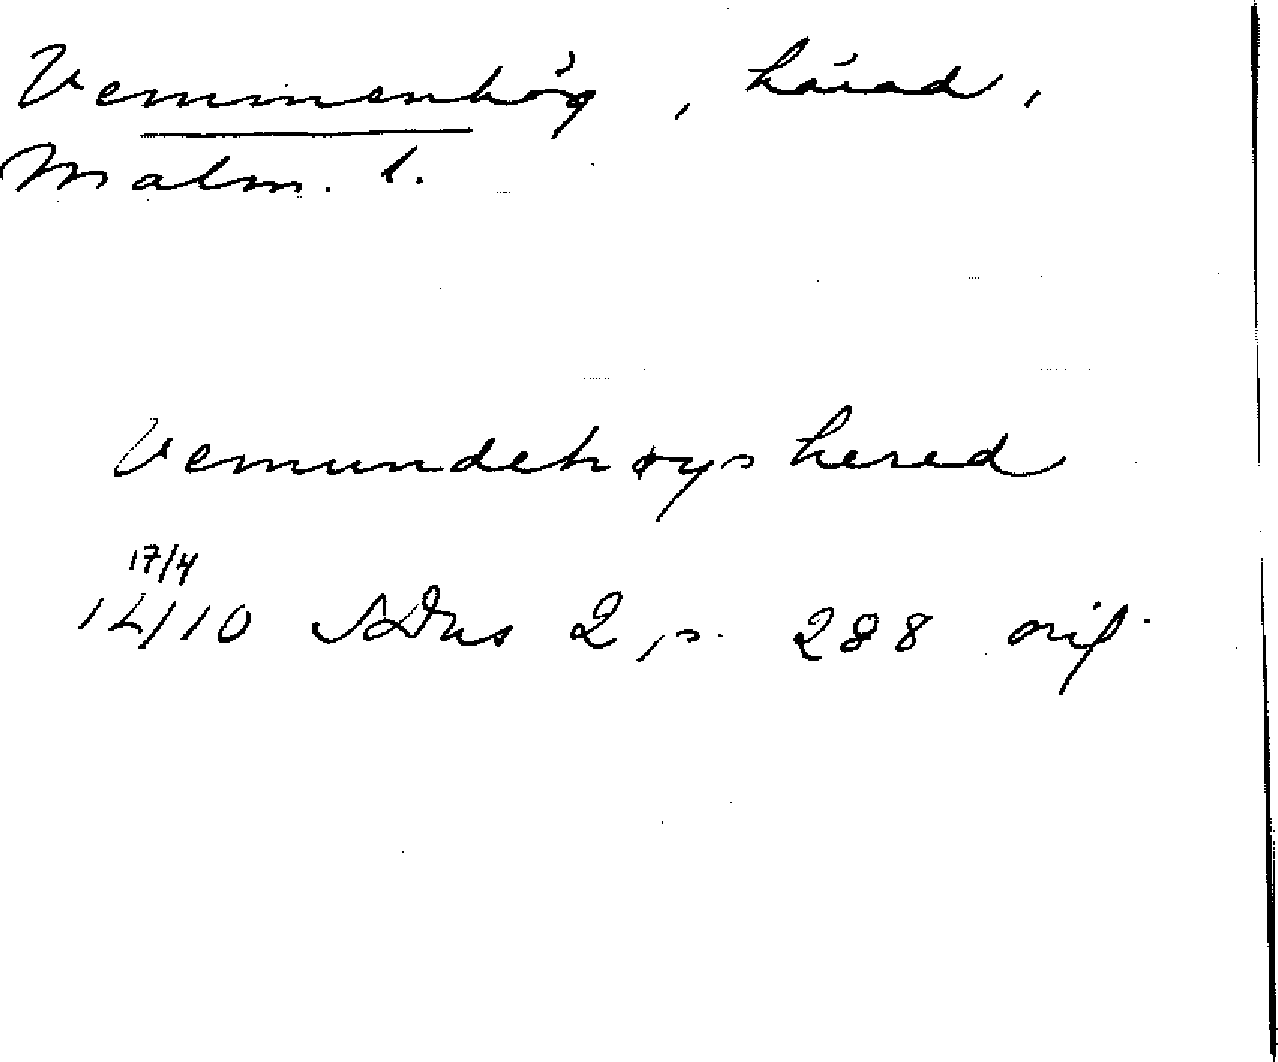 Vemmenhög, härad,
Malm. l.
Vemundehøys hered
17/4
1410 SDns 2, s. 288 orig.